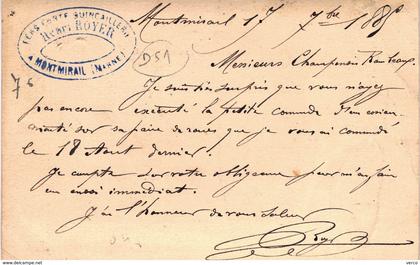 FERS FONTE QUINCAILLERIE
Henri ROYER
A MONTMIRAIL (MARNE)
Montmirail 17 7bre 188
D51
76
Messieurs Champenois
Je suis très surpris que vous n'ayez
pas encore exécuté la petite commde d'un
sur sa paire de roues que je vous ai commandé
le 18 Aout dernier.
Je compte sur votre obligeance pour m'en faire
un envoi immédiat.
J'ai l'honneur de vous saluer
Royer